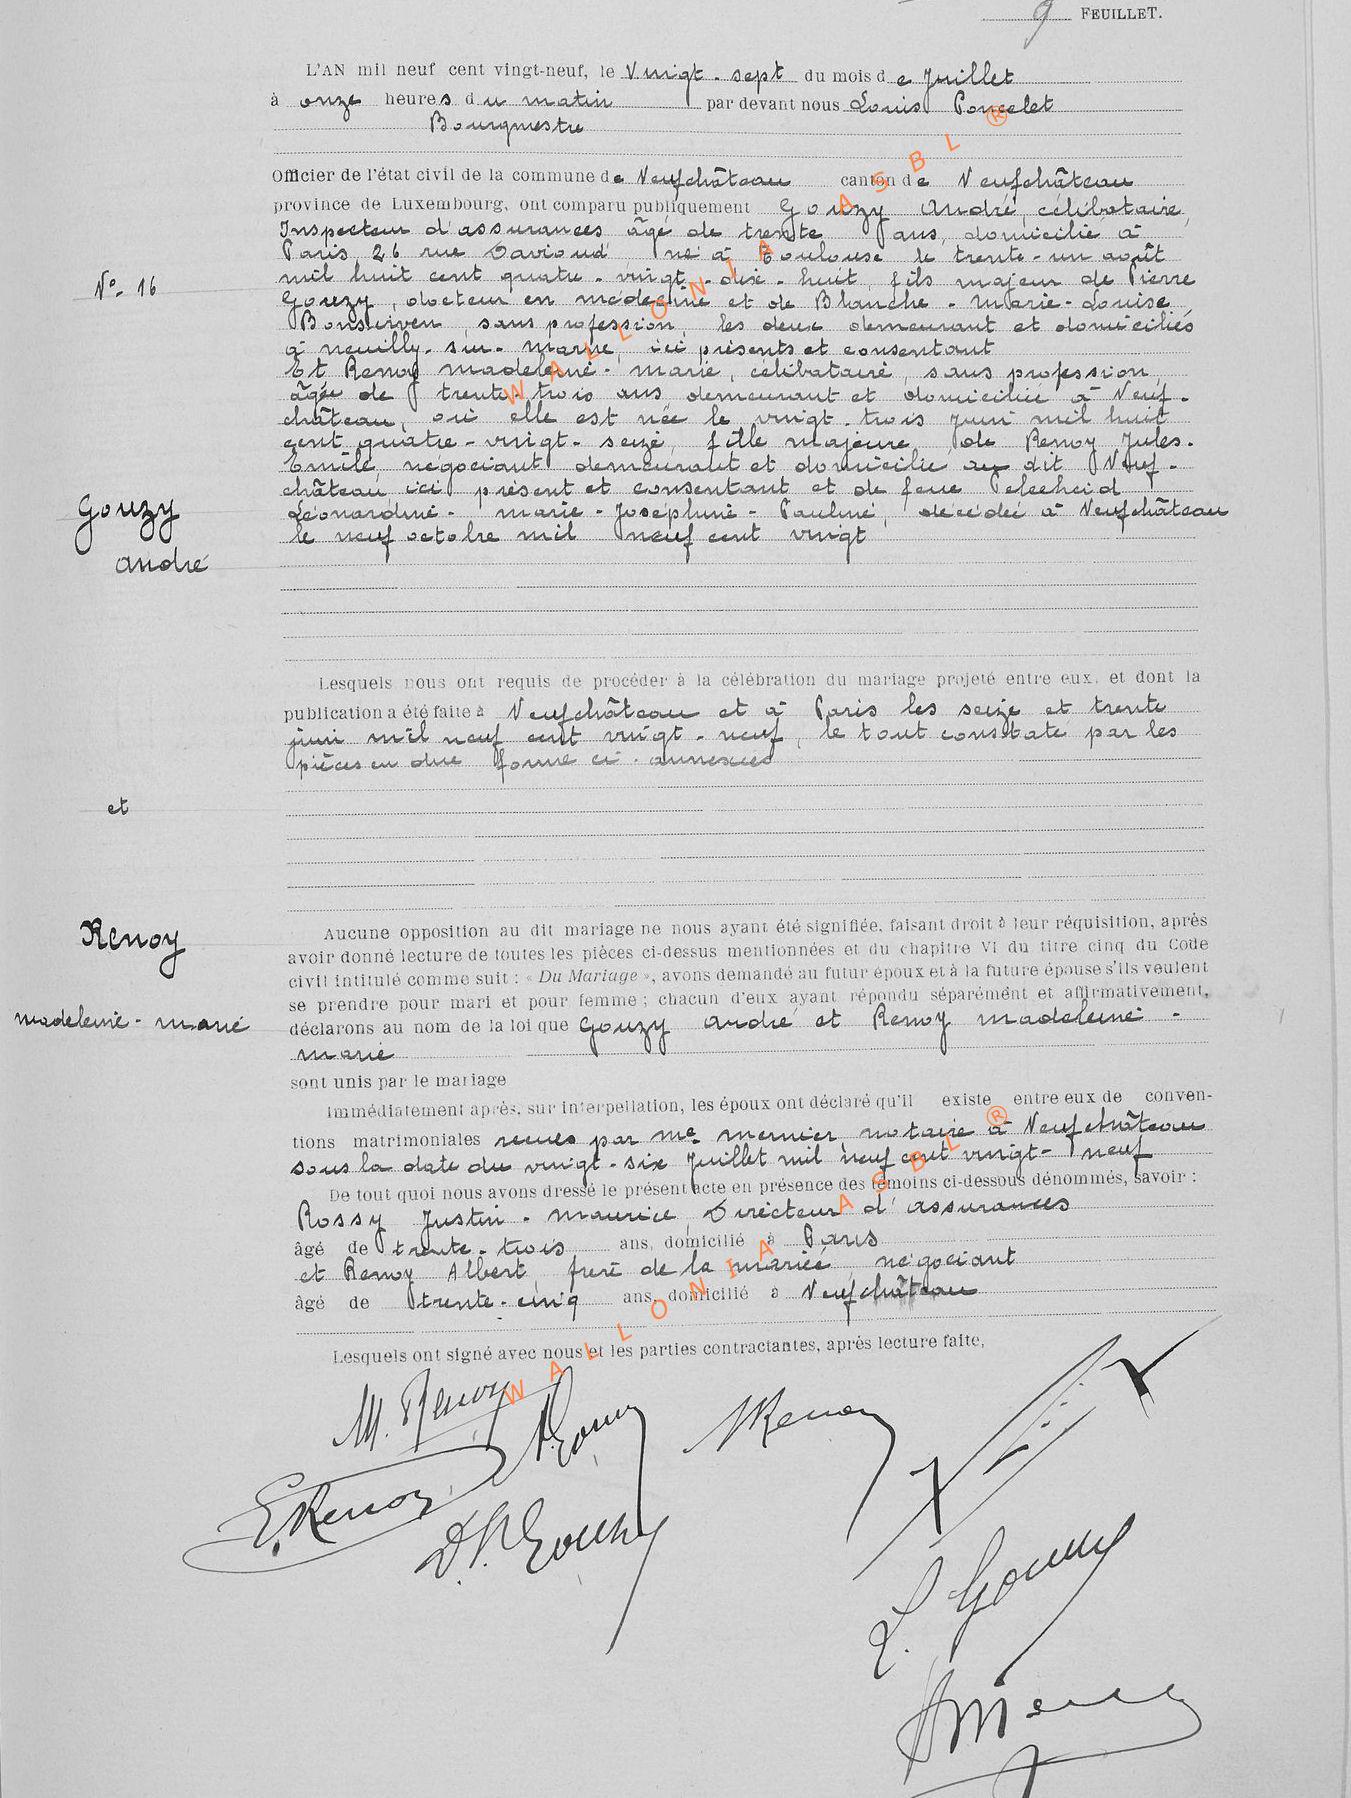 9 FEUILLET.
L'AN mil neuf cent vingt-neuf, le Vingt-sept du mois de Juillet
à onze heures du matin par devant nous Louis Poncelet
Bourgmestre
Officier de l'état civil de la commune de Neufchâteau canton de Neufchâteau
province de Luxembourg, ont comparu publiquement Gouzy André, célibataire,
Inspecteur d'assurances âgé de trente ans, domicilié à
Paris, 26 rue Davioud né à Toulouse le trente-un août
mil huit cent quatre-vingt-dix-huit, fils majeur de Pierre
N° 16
Gouzy, docteur en médecine et de Blanche-Marie-Louise
Bonsirven, sans profession, les deux demeurant et domiciliés
à Neuilly-sur-Marne, ici présents et consentant
Et Renoy Madeleine-Marie, célibataire, sans profession,
âgée de trente-trois ans demeurant et domiciliée à Neuf-
château, où elle est née le vingt-trois juin mil huit
cent quatre-vingt-seize, fille majeure de Renoy Jules-
Emile, négociant demeurant et domicilié au dit Neuf-
château ici présent et consentant et de feue
Léonardine-Marie-Joséphine-Pauline, décédée à Neufchâteau
le neuf octobre mil neuf cent vingt
Gouzy
André
Lesquels nous ont requis de procéder à la célébration du mariage projeté entre eux, et dont la
publication a été faite à Neufchâteau et à Paris les seize et trente
juin mil neuf cent vingt-neuf, le tout constaté par les
pièces en due forme ci-annexées
et
Renoy
Madeleine-Marie
Aucune opposition au dit mariage ne nous ayant été signifiée, faisant droit à leur réquisition, après
avoir donné lecture de toutes les pièces ci-dessus mentionnées et du chapitre VI du titre cinq du Code
civil intitulé comme suit : « Du Mariage », avons demandé au futur époux et à la future épouse s'ils veulent
se prendre pour mari et pour femme ; chacun d'eux ayant répondu séparément et affirmativement,
déclarons au nom de la loi que Gouzy André et Renoy Madeleine-
Marie
sont unis par le mariage
Immédiatement après, sur interpellation, les époux ont déclaré qu'il existe entre eux de conven-
tions matrimoniales reçues par Me Mernier notaire à Neufchâteau
sous la date du vingt-six Juillet mil neuf cent vingt-neuf
De tout quoi nous avons dressé le présent acte en présence des témoins ci-dessous dénommés, savoir :
Rossy Justin-Maurice, Directeur d'assurances
âgé de trente-trois ans, domicilié à Paris
et Renoy Albert, frère de la mariée, négociant
âgé de trente-cinq ans, domicilié à Neufchâteau
Lesquels ont signé avec nous et les parties contractantes, après lecture faite,
M. Renoy
A. Gouzy
A Renoy
E. Renoy
Dr P. Gouzy
L. Gouzy
WALLONIA ASBL ®
WALLONIA ASBL ®